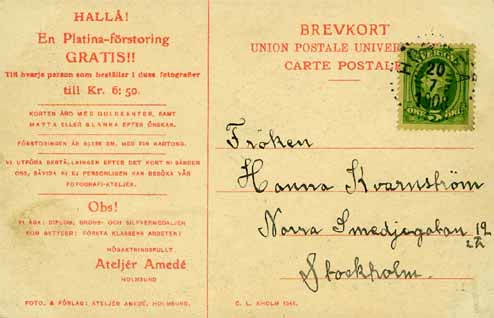 HALLÅ!
En Platina-förstoring
GRATIS!!
Till hvarje person som beställer 1 duss. fotografier
till Kr. 6: 50.
KORTEN ÄRO MED GULDKANTER, SAMT
MATTA ELLER BLANKA EFTER ÖNSKAN.
FÖRSTORINGEN ÄR 30×38 CM. MED FIN KARTONG.
VI UTFÖRA BESTÄLLNINGEN EFTER DET KORT NI SÄNDER
OSS, SÅVIDA NI EJ PERSONLIGEN KAN BESÖKA VÅR
FOTOGRAFI-ATELJÉR.
Obs!
VI ÄGA: DIPLOM, BRONS- OCH SILFVERMEDALJEN
SOM BETYDER: FÖRSTA KLASSENS ARBETEN!
HÖGAKTNINGSFULLT.
Ateljér Amedé
HOLMSUND
FOTO. & FÖRLAG: ATELJÉR AMEDÉ, HOLMSUND.
BREVKORT
UNION POSTALE UNIVER
CARTE POSTALE
20
7
Fröken
Hanna Kvarnström
Norra Smedjegatan 12
Stockholm.